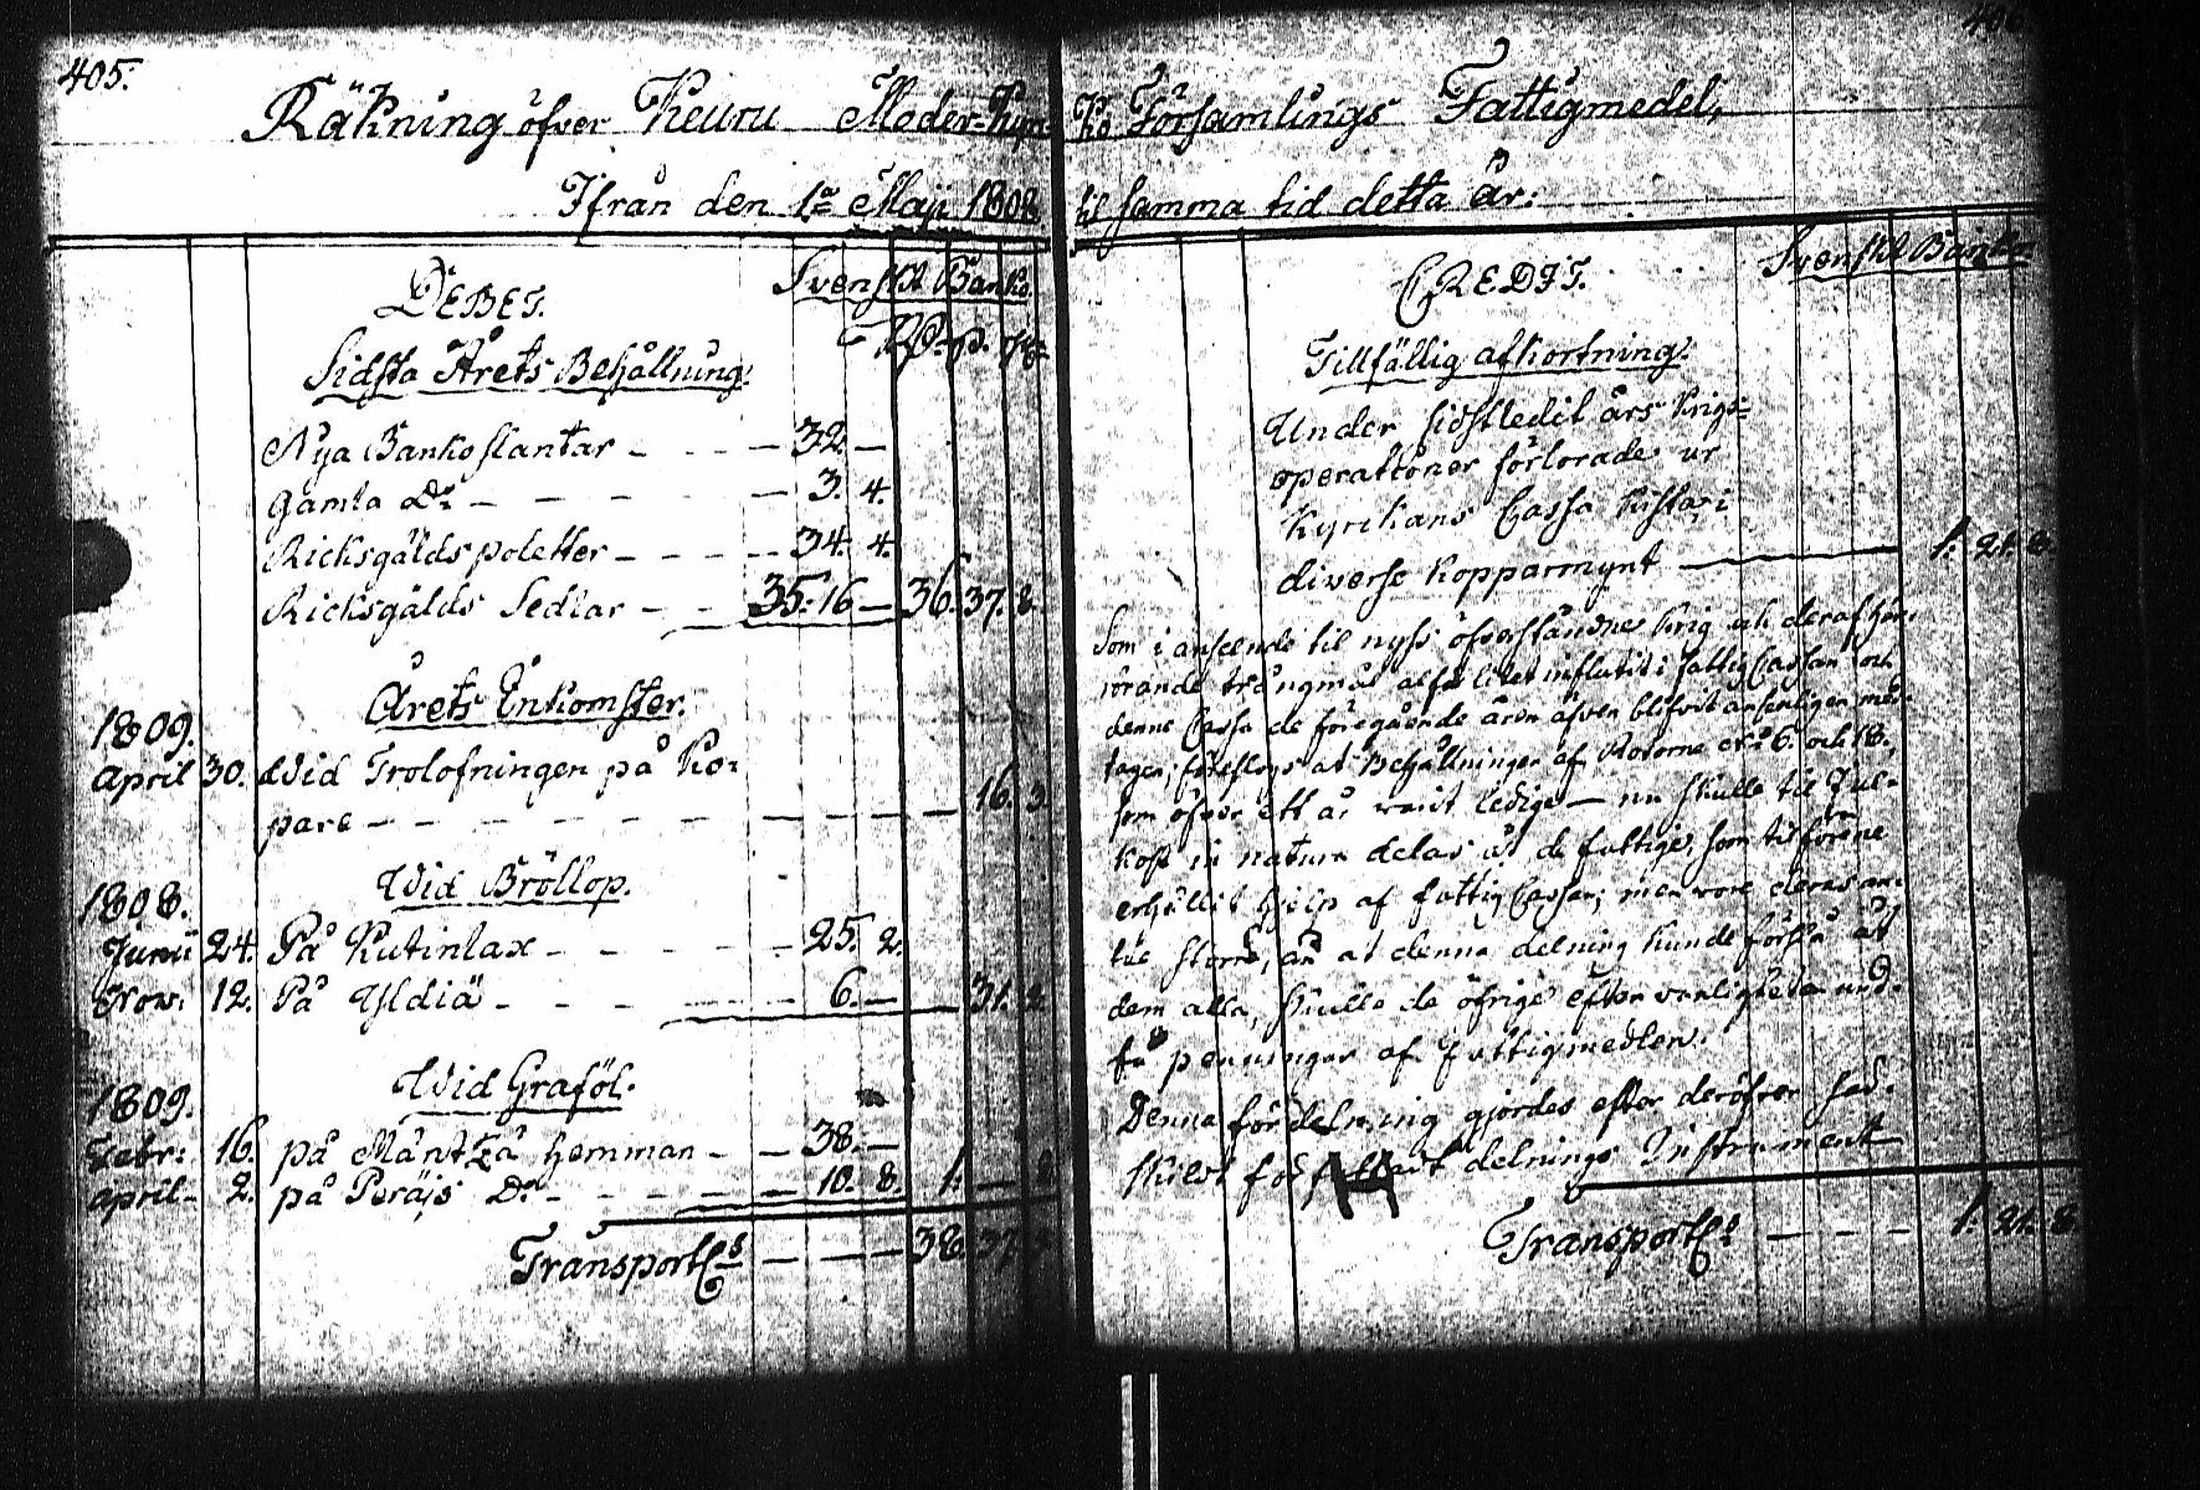 405.
Räkning öfver Keuru Moder-Kyr-
Ifrån den 1a Maji 1808
DEBET.
Svenskt Banko.
Rd. s. rst.
Sidsta Årets Behållning.
Nya Banko slantar - - - 32. -
Gamla Do - - - - - 3. 4.
Ricksgälds poletter - - - - 34. 4.
Ricksgälds Sedlar - - 35. 16 - 36. 37. 8.
Årets Inkomster.
1809.
April 30. Wid Trolofningen på Ko-
pare - - - - - - - - - 16. 3.
Wid Bröllop.
1808.
Junii 24. På Kutinlax - - - - - 25. 2.
Nov: 12. På Yldiä - - - - - 6. - - 31. 2.
Wid Graföl.
1809.
Febr: 16. på Mänttä hemman - - 38. -
April - 2. på Peräjs Do - - - - - 10. 8. 1. -
Transport - - - 38. 37.
406
ko Församlings Fattigmedel,
til samma tid detta år:
CREDIT.
Svenskt Banko.
Tillfällig afkortning.
Under sidstledit års krigs-
operationer förlorades ur
Kyrkans Cassa kista i
diverse kopparmynt 1. 21. 8.
Som i anseende til nyss öfverståndne krig och deraf här-
rörande trångmål alför litet influtit i fattig Cassan och
denne Cassa de föregående åren äfven blifvit ansenligen med-
tagen; föreslogs at Behållningen af Rotorne No 6. och 18.,
som öfver ett år varit ledige - nu skulle til Jul-
kost in natura delas åt de fattige, som tilförene
erhållit hjelp af fattig Cassan; men vore deras an-
tal större, än at denna delning kunde förslå åt
dem alla, skulle de öfrige efter vanligheten und-
få penningar af fattigmedlen.
Denna fördelning gjordes efter deröfver sär-
skilt författadt delnings Instrument
Transport - - - - 1. 21. 8.